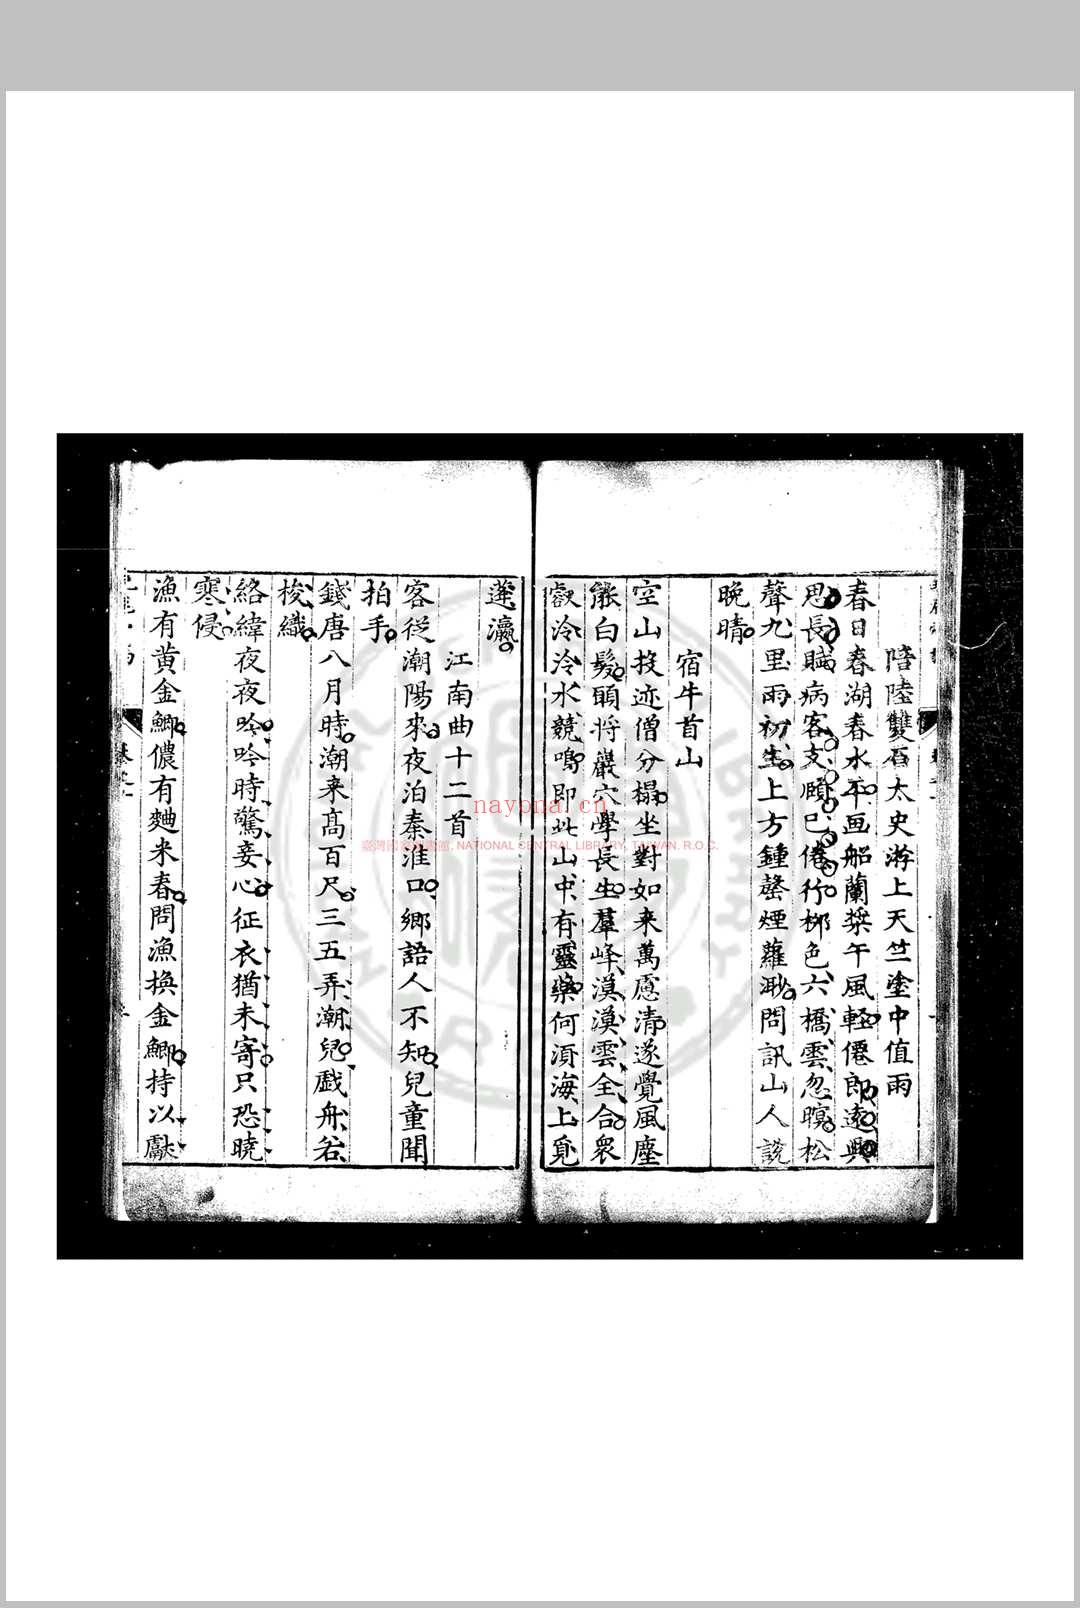 陪陸雙石太史游上天竺塗中值雨
春日春湖春水平画船蘭槳午風輕僊郎遠興
思長賦病客支頤已倦行栁色六橋雲忽暝松
聲九里雨初生上方鐘磬煙蘿𣺌問訊山人說
晚晴
宿牛首山
空山投迹僧分榻坐對如来萬慮清遂覺風塵
能白髮頭將巖穴學長生羣峰漠漠雲全合衆
泠泠水競鳴即此山中有靈藥何湏海上覓
蓬瀛
江南曲十二首
客從潮陽來夜泊秦淮口鄉語人不知兒童聞
拍手
錢唐八月時潮来髙百尺三五弄潮兒戲舟若
梭織
絡緯夜夜吟吟時驚妾心征衣猶未寄只恐曉
寒侵
漁有黄金鯽儂有麯米春問漁換金鯽持以獻
nayona.cn
臺灣國家圖書館, NATIONAL CENTRAL LIBRARY, TAIWAN, R.O.C.